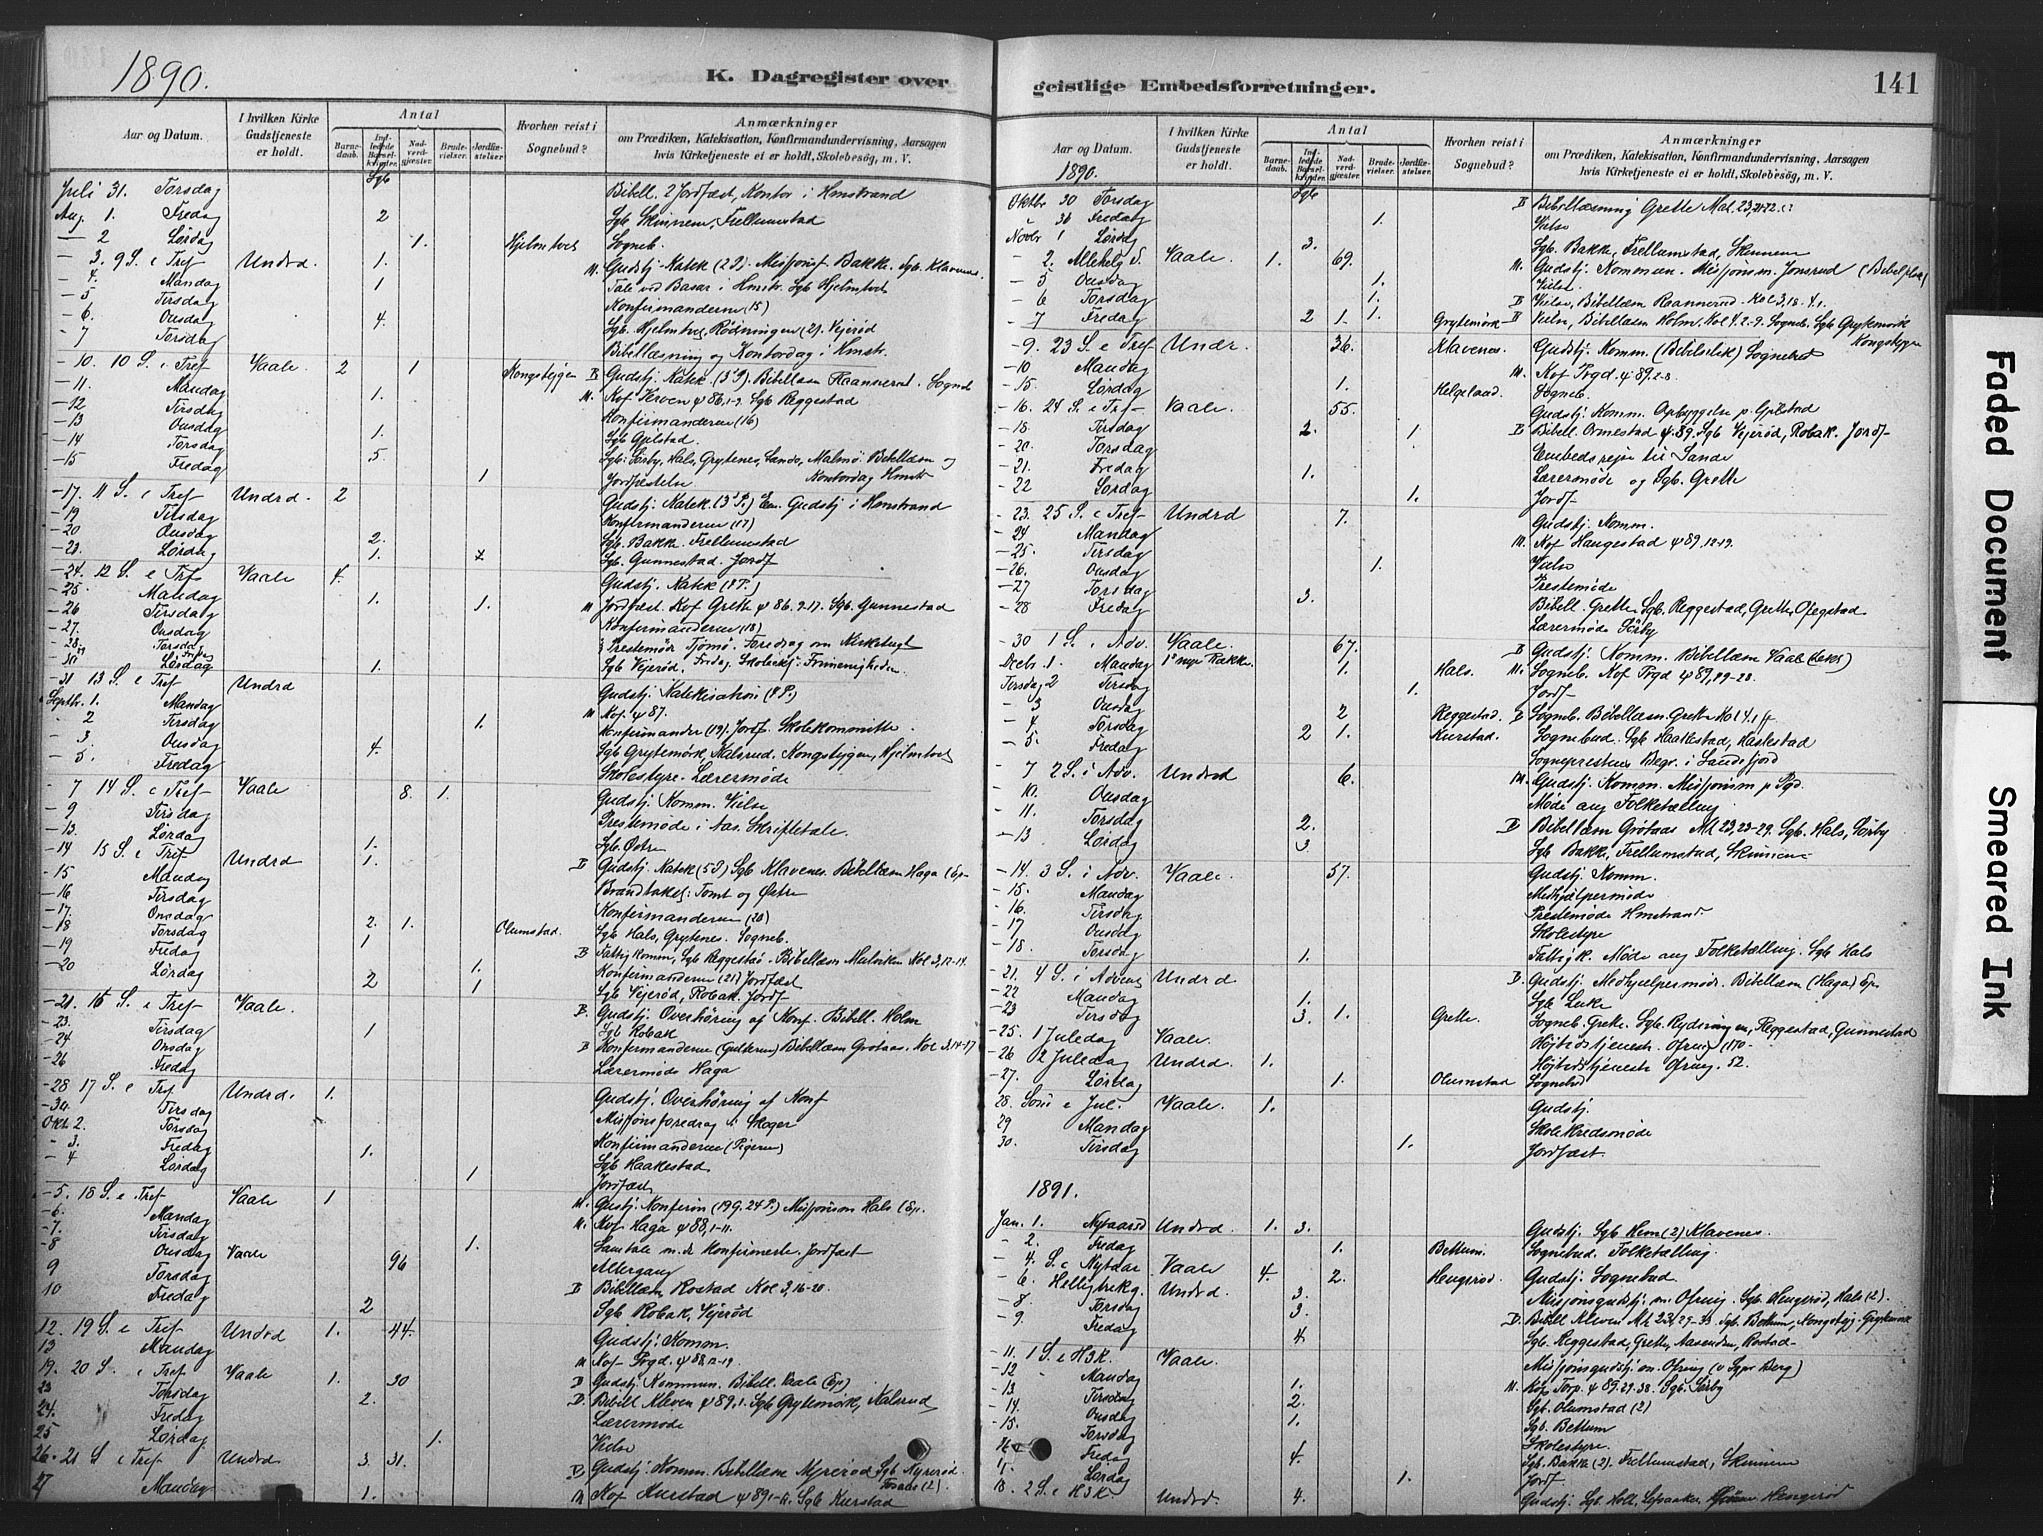 1890.
K. Dagregister over
Aar og Datum.
I hvilken Kirke Gudstjeneste er holdt.
Antal
Barnedaab.
Indledede Barselkvinder.
Nadverdgjæster.
Brudevielser.
Jordfæstelser.
Hvorhen reist i Sognebud?
Anmærkninger
om Prædiken, Katekisation, Konfirmandundervisning, Aarsagen
hvis Kirketjeneste ei er holdt, Skolebesög, m. V.
Sgb
Juli 31. Torsdag Bibell. 2 Jordfæst, Kontor i Hmstrand
Aug. 1. Fredag 2 Sgb Skinnem, Frellumstad
— 2 Lørdag 1. Hjelmtvet Sogneb.
— 3. 9 S. e Tref Undrd. 1. M. Gudstj. Katek (2 P). Misjonsf Bakk. Sgb. Klavenes.
— 4. Mandag 1 Tale ved Basar i Hmstr. Sgb Hjelmtvet
— 5 Tirsdag Konfirmanderne (15)
— 6. Onsdag 4. Sgb. Hjelmtvet, Rødningen (2). Vejerød
— 7 Torsdag Bibellæsning og Kontordag i Hmstr.
— 10. 10 S. e Tref Vaale. 2 1 Kongsteigen B Gudstj. Katek. (3 P). Bibellæsn Raannerud. Sogneb
— 11. Mandag 1. M. Kof Kerven ψ 86.1-9. Sgb Reggestad
— 12 Tirsdag Konfirmanderne (16)
— 13 Onsdag 1. Sgb Gjelstad.
— 14 Torsdag 5 Sgb: Sørby, Hals, Grytenes, Sando, Malmø. Bibellæsn og
— 15 Fredag 1 Jordfæstelse Kontordag Hmstr
— 17. 11 S. e Tref Undrd. 2 Gudstj. Katek. (3 P.) Em. Gudstj i Hmstrand
— 19 Tirsdag Konfirmanderne (17)
— 20 Onsdag 2. Sgb. Bakke. Frellumstad
— 23. Lørdag 1. 2 Sgb. Gunnestad. Jordf
— 24. 12 S. e Tref Vaale 4. Gudstj. Katek (1 P.)
25. Mandag 1. 1. M Jordfæst. Kof Grette ψ 86. 9-17. Sgb. Gunnestad
— 26 Tirsdag Konfirmanderne (18)
— 27. Onsdag 3 Prestemøde Tjømø. Foredrag om Kirketugt
— 28. Torsdag
30 Lørdag 1. Sgb Vejerød. Fredag. Skolekstj. Frimenigheden
— 31 13 S. e Tref Undrd Gudstj. Katekisation (4 P.)
Septbr. 1. Mandag M Kof. ψ 87.
— 2 Tirsdag 1. Konfirmander (19). Jordf. Skolekommitte
— 3 Onsdag 4. Sgb Grytemørk, Kalsrud, Kongsteigen, Hjelmtvet
— 5. Fredag Skolestyre. Lærermøde
— 7 14 S. e Tref Vaale 8. 1. Gudstj. Komm. Vielse
— 9 Tirsdag Prestemøde i Aas. Skriftetale.
— 13. Lørdag 1. Sgb. Østre
— 14 15 S. e Tref Undrd 1. B Gudstj. Katek (5 P) Sgb Klavenes. Bibellæsn Haga (Ep.
— 15 Mandag Brandtakst: Tomt og Østre
— 16 Tirsdag Konfirmanderne (20)
— 17. Onsdag 2. 1. Olumstad. Sgb Hals, Grytenes. Sogneb.
— 18 Torsdag 1
— 19 Fredag 1. B Fattigkomm, Sgb Reggestad. Bibellæsn Mulviken Kol 3,12-14.
— 20 Lørdag 2 1 Konfirmanderne (21) Jordfæst
Sgb Vejerød, Robak. Jordf
— 21. 16 S. e Tref Vaale. B. Gudstj. Overhøring af Konf. Bibell. Holm
— 23. Tirsdag 1 Sgb Robak
— 24 Onsdag B Konfirmanderne (Gutterne) Bibellæsn Grotaas. Kol 3,14-17
— 26 Fredag Lærermøde Haga
— 28 17 S. e Tref Undrd. 1. Gudstj. Overhøring af Konf
— 30. Tirsdag Misjonsforedrag i Skoger
Okt. 2. Torsdag Konfirmanderne (Pigerne)
— 3. Fredag 1. Sgb Haakestad
— 4 Lørdag 1 Jordfæst
— 5. 18 S. e. Tref Vaale 1. M. Gudstj. Konfirm (19 G. 24 P.) Misjonsm Hals (Ep.
— 6. Mandag M. Kof. Haga ψ 88, 1-11.
— 7. Tirsdag 1. Samtale m. de Konfirmerte. Jordfæst
— 8 Onsdag Vaale 96 Altergang
9 Torsdag B Bibellæsn Rostad Kol 3,16-20
10 Fredag 2 Sgb Robak, Vejerød
12. 19 S. e Tref Undrd 1. 44. Gudstj. Komm.
13 Mandag M Kof Prgd. ψ 88,12-19.
19. 20 S. e Tref Vaale 1. 30 B Gudstj. Kommun. Bibell. Vaale (Ep)
23 Torsdag 2. B. Bibell Kleven ψ 89.1. Sgb Grytemørk, Kalsrud
24. Fredag Lærermøde
25 Lørdag 1. Vielse
26. 21 S. e Tref Undrd 3. 31. B Gudstj. Komm. Bibellæsn Nyrerød Sgb. Nyrerød. Foraas (2)
27 Mandag 1. M Kof Kurstad ψ 89,1-12. Sgb Kurstad
geistlige Embedsforretninger.
141
Aar og Datum.
I hvilken Kirke Gudstjeneste er holdt.
Antal
Barnedaab.
Indledede Barselkvinder.
Nadverdgjæster.
Brudevielser.
Jordfæstelser.
Hvorhen reist i Sognebud?
Anmærkninger
om Prædiken, Katekisation, Konfirmandundervisning, Aarsagen
hvis Kirketjeneste ei er holdt, Skolebesög, m. V.
1890.
Sgb
Oktbr 30 Torsdag B Bibellæsning Grette Mat. 23,
— 31 Fredag 1. Vielse
Novbr 1 Lørdag 3. Sgb. Bakke, Frellumstad, Skinnem
— 2. Allehelg. D. Vaale. 1. 69. M. Gudstj. Kommun. Misjonsm. Jonsrud (Bibelflok)
— 5 Onsdag 1. Vielse.
— 6 Torsdag 1. B Vielse, Bibellæsn Raannerud. Kol 3,18-4.1.
— 7 Fredag 2 1. 1. Grytemørk B Vielse, Bibellæsn Holm. Kol 4.2-9. Sogneb. Sgb Grytemørk Kongsteigen
— 9. 23 S. e Tref Undr. 36. Klavenes. Gudstj. Komm. (Bibelselsk) Sognebud
— 10 Mandag M. Kof Prgd. ψ 89.2-8
— 15. Lørdag 1. Helgeland. Sogneb.
— 16. 24 S. e Tref Vaale. 55. Gudstj. Komm. Opbyggelse p. Gjelstad
— 18. Tirsdag 2. 1. B Bibell. Ormestad ψ. 89. Sgb Vejerød, Robak. Jordf
— 20. Torsdag Embedsrejse til Sande
— 21. Fredag 1. Lærermøde og Sgb. Grette
— 22 Lørdag 1. Jordf.
— 23. 25 S. e Tref Undrd 7. Gudstj. Komm.
24 Mandag M. Kof Haugestad ψ 89.12-19.
— 25. Tirsdag 1. Vielse
— 26. Onsdag Prestemøde
— 27 Torsdag 3. Bibell. Grette. Sgb. Reggestad, Grette, Gjegstad
— 28 Fredag Lærermøde Sørby
— 30 1 S. i Adv. Vaale. 67. B Gudstj. Komm. Bibellæsn Vaale (leks)
Decb. 1. Mandag 1. Hals. M. Sogneb. Kof Prgd ψ 89,19-28.
Tirsdag 2 Tirsdag 1. Jordf
— 3 Onsdag 2 Reggestad. B Sogneb. Bibellæsn. Grette Kol 4.1 ff
— 4 Torsdag 2 1. Kurstad. Sognebud. Sgb Haakestad, Haslestad
— 5. Fredag Sogneprestens Begr. i Sandefjord
— 7 2 S. i Adv. Undrd 6. M. Gudstj. Komm. Misjonsm p Pgd.
— 10. Onsdag Møde ang Folketælling
— 11. Torsdag 2. B Bibellæsn Grotaas Mt 23,23-29. Sgb. Hals, Sørby
— 13 Lørdag 3 Sgb Bakk, Frellumstad, Skinnem
— 14. 3 S. i Adv. Vaale. 57. Gudstj. Komm.
— 15. Mandag Medhjælpermøde
— 16. Tirsdag Prestemøde Hmstrand
— 17 Onsdag Skolestyre
— 18. Torsdag 1. Fattigk. Møde ang Folketælling. Sgb Hals
— 21. 4 S. i Advent Undrd B. Gudstj. Medhjelpermøde. Bibellæsn (Haga) Ep
— 22 Mandag 1. Sgb. Luke
— 23 Tirsdag 3. 1. Grette. Sogneb. Grette. Sgb. Rydningen, Reggestad, Gunnestad
— 25. 1 Juledag Vaale. Højtidstjeneste. Ofring 170.
— 26 2 Juledag Undrd. 1. Højtidstjeneste Ofring. 52.
— 27. Lørdag 1. Olumstad Sognebud
28. Sønd e Jul. Vaale. 1. Gudstj.
29 Mandag Skolekredsmøde
30. Tirsdag 1. Jordfæst.
1891.
Jan. 1. Nytaarsd Undrd. 1. 3. Gudstj. Sgb Hem (2) Klavenes.
— 2. Fredag 1. Bettum. Sognebud. Folketælling.
— 4. S. e Nytaar Vaale 4. 2. Hengerød. Gudstj. Sognebud.
— 6. Helligtrekg. Undrd. 3. Misjonsgudstj. m. Ofring. Sgb. Hengerød, Hals (2).
— 8. Torsdag 3. B. Bibell Kleven Mt 23,29-33. Sgb. Bettum, Kongsteig. Grytemørk
— 9. Fredag 4. Sgb. Reggestad, Grette, Rostad
— 11. 1 S. e H3K. Vaale. Misjonsgudstj m. Ofring (v Sgpr Berg)
— 12 Mandag 1. M. Kof. Torp. ψ 89.29-38. Sgb. Sørby
— 13 Tirsdag 2. Sgb. Olumstad (2)
— 14. Onsdag 1. Sgb. Bettum
— 15. Torsdag Skolestyre.
Fredag 4. Sgb. Bakke (2). Frellumstad, Skinnem
Lørdag 1. Jordf
18. 2 S. e H3K. Undrd. 4. Gudstj. Sgb. Holt, Hengerød
Faded Document
Smeared Ink